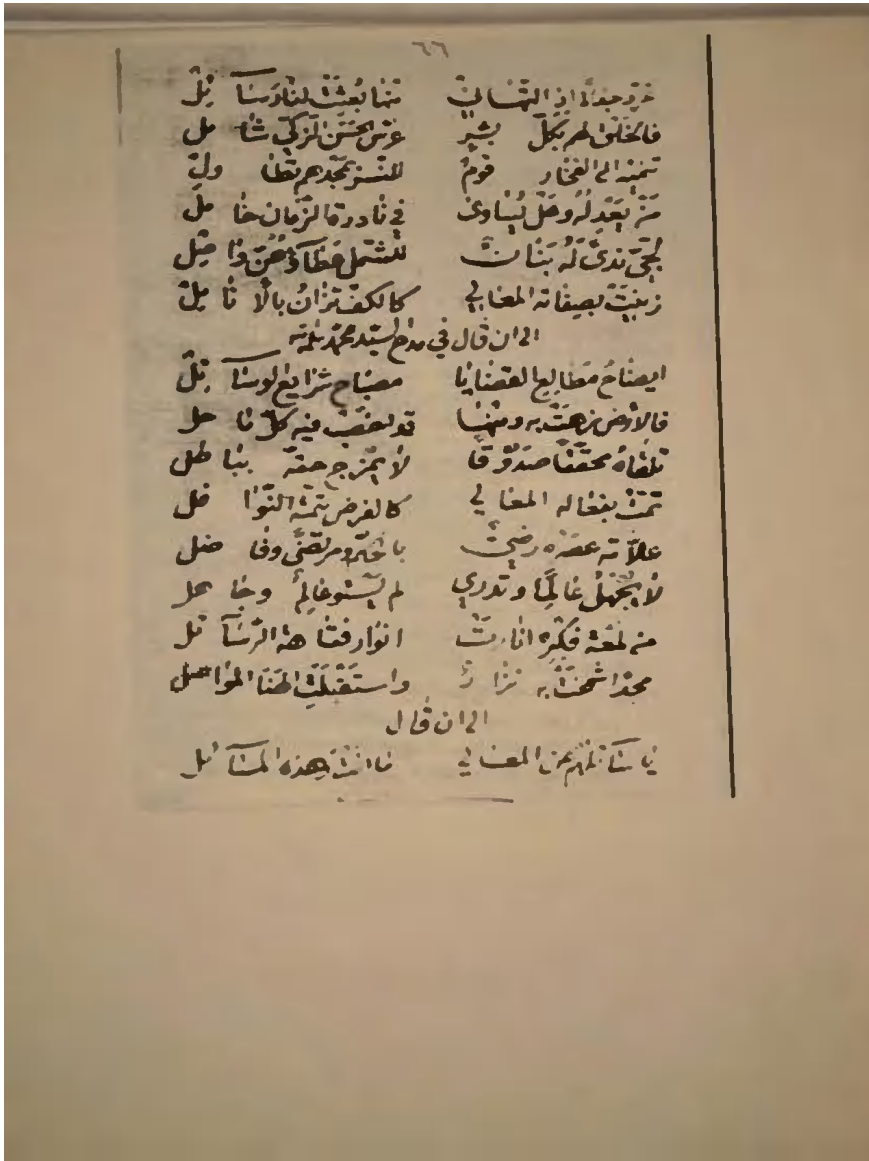 ٦٦
التهاني منها بُعِثَت لنا رسآئِلْ
فالخلق لهم بكلّ بشرٍ عرس الحسن الزكيّ شامل
تنميه الى الفخار قومٌ للنسر بمجدهم تطاولْ
مَن يَعْدِلُهُ وهَلْ يُساوى في نادرة الزّمان خامل
نَدىً لَهُ بَنانٌ
زينت بصفاته المعالي كالكفّ تزانُ بالأنامِلْ
الى ان قال في مدح السيّد محمّد سلمه الله
ايضاحُ مطالِع القضايا مصباح شرايع الوسآئلْ
فالأرض زهت به ومنها قد اخصب فيه كلّ ماحل
تلقاهُ محققًا صدوقًا لا يمزج حقّه بباطل
تمّت بفعاله المعالي كالفرض بتمّه النوافل
علّامة عصره رضيٌّ باخيه ومرتضىً وفاضل
لا يجهلُ عالِمًا وتدري لم يستو عالِمٌ وجاهل
من لمعة فكره انارت انوار فقاهة الرّسآئل
مجدًا شمخت به نزارٌ واستقبلت الهنا المواصل
الى ان قال
يا سائلهم عن المعالي ما انت وهذه المسآئل